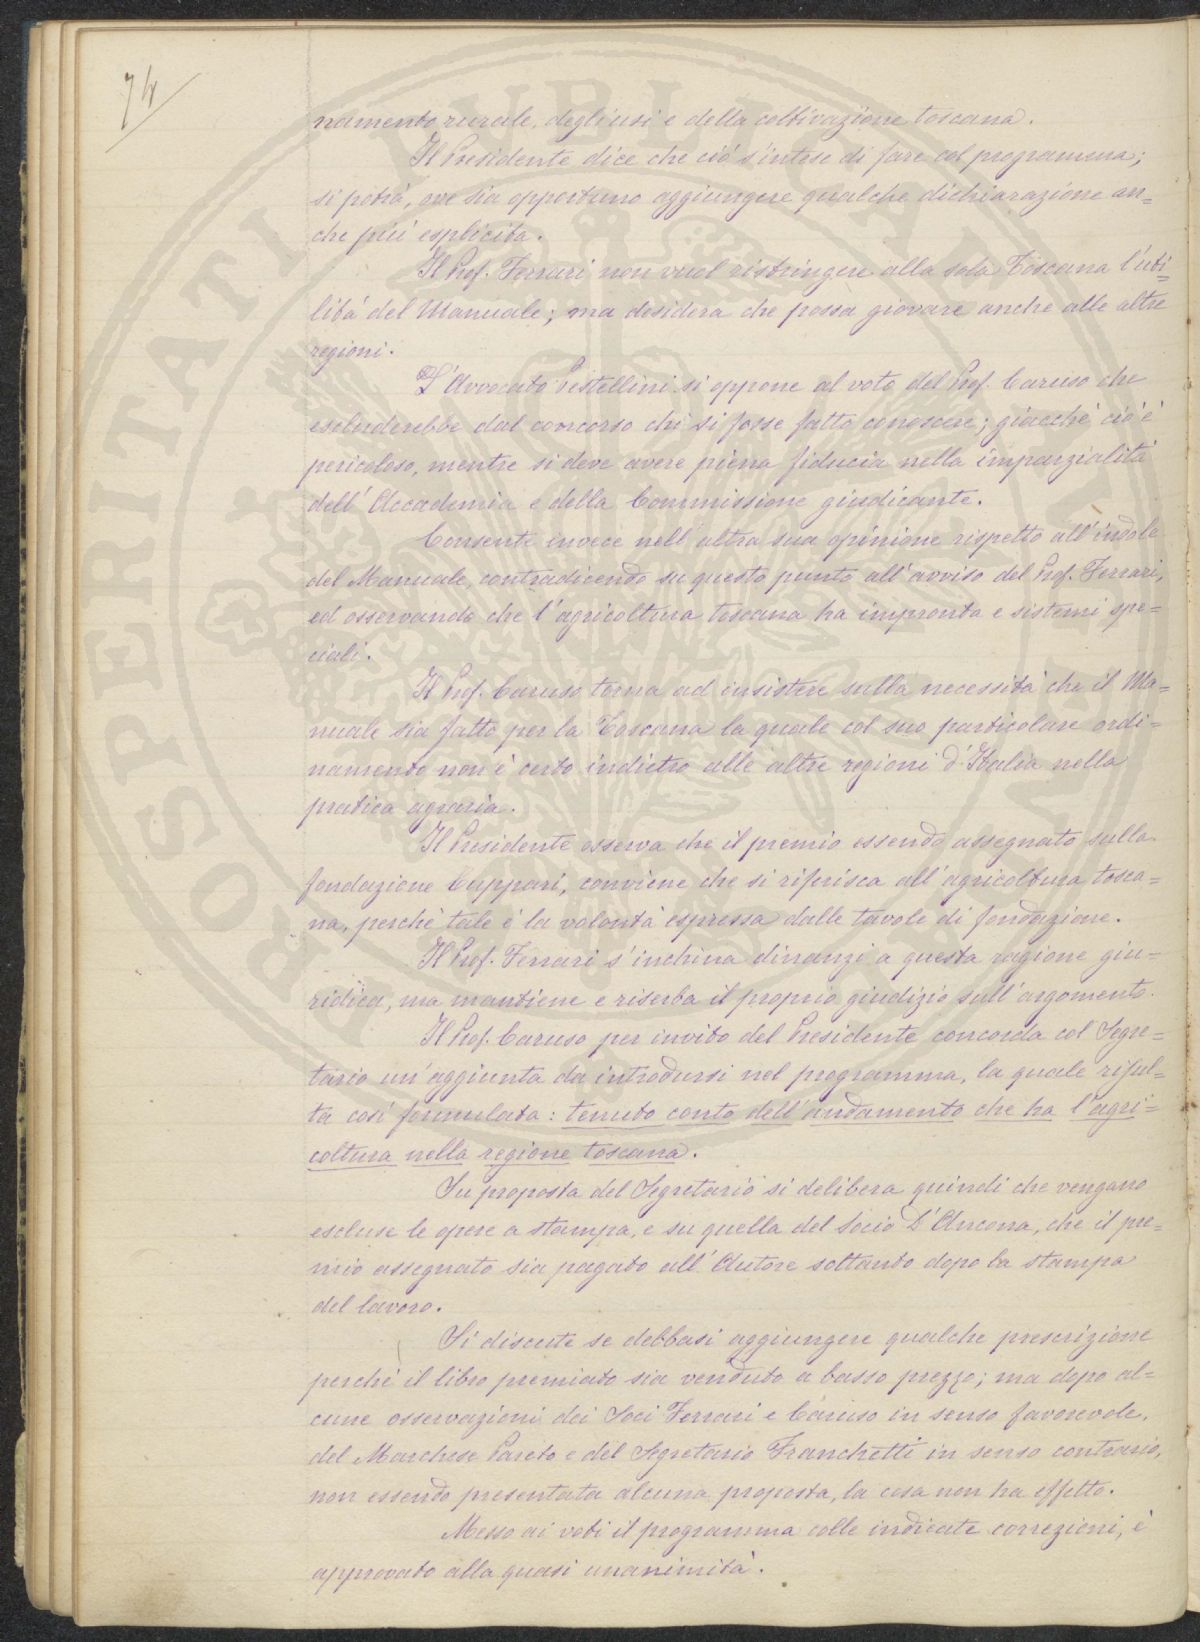 74
namento rurale, degli usi e della coltivazione toscana.
Il Presidente dice che ciò s'intese di fare col programma;
si potrà, ove sia opportuno aggiungere qualche dichiarazione an=
che più esplicita.
Il Prof. Ferrari non vuol ristringere alla sola Toscana l'uti=
lità del Manuale; ma desidera che possa giovare anche alle altre
regioni.
L'Avvocato Pestellini si oppone al voto del Prof. Caruso che
escluderebbe dal concorso chi si fosse fatto conoscere; giacchè ciò è
pericoloso, mentre si deve avere piena fiducia nella imparzialità
dell'Accademia e della Commissione giudicante.
Consente invece nell'altra sua opinione rispetto all'indole
del Manuale, contradicendo su questo punto all'avviso del Prof. Ferrari,
ed osservando che l'agricoltura toscana ha impronta e sistemi spe=
ciali.
Il Prof. Caruso torna ad insistere sulla necessità che il Ma=
nuale sia fatto per la Toscana la quale col suo particolare ordi=
namento non è certo indietro alle altre regioni d'Italia nella
pratica agraria.
Il Presidente osserva che il premio essendo assegnato sulla
fondazione Cuppari, conviene che si riferisca all'agricoltura tosca=
na, perchè tale è la volontà espressa dalle tavole di fondazione.
Il Prof. Ferrari s'inchina dinanzi a questa ragione giu=
ridica, ma mantiene e riserba il proprio giudizio sull'argomento.
Il Prof. Caruso per invito del Presidente concorda col Segre=
tario un'aggiunta da introdursi nel programma, la quale risul=
ta così formulata: tenuto conto dell'andamento che ha l'agri=
coltura nella regione toscana.
Su proposta del Segretario si delibera quindi che vengano
escluse le opere a stampa, e su quella del Socio D'Ancona, che il pre=
mio assegnato sia pagato all'Autore soltanto dopo la stampa
del lavoro.
Si discute se debbasi aggiungere qualche prescrizione
perchè il libro premiato sia venduto a basso prezzo; ma dopo al=
cune osservazioni dei Soci Ferrari e Caruso in senso favorevole,
del Marchese Pareto e del Segretario Franchetti in senso contrario,
non essendo presentata alcuna proposta, la cosa non ha effetto.
Messo ai voti il programma colle indicate correzioni, è
approvato alla quasi unanimità.